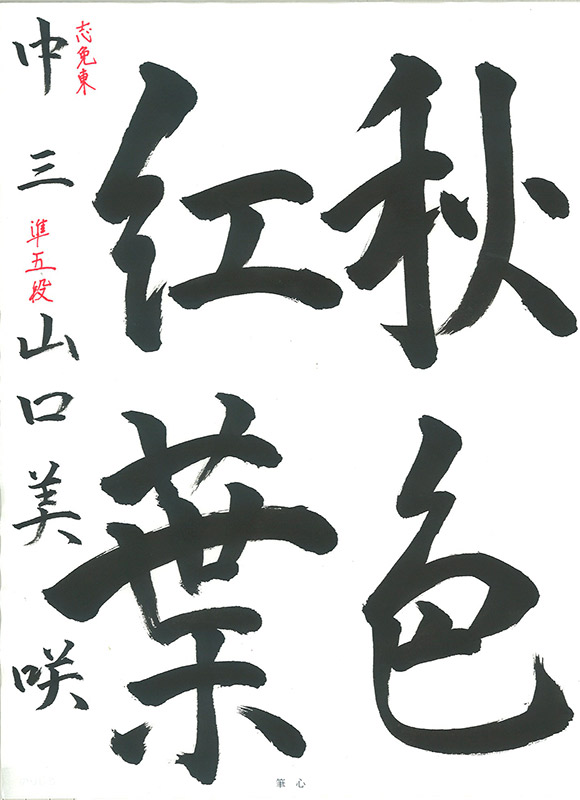 秋色
紅葉
志免東
中三 準五段 山口美咲
筆心